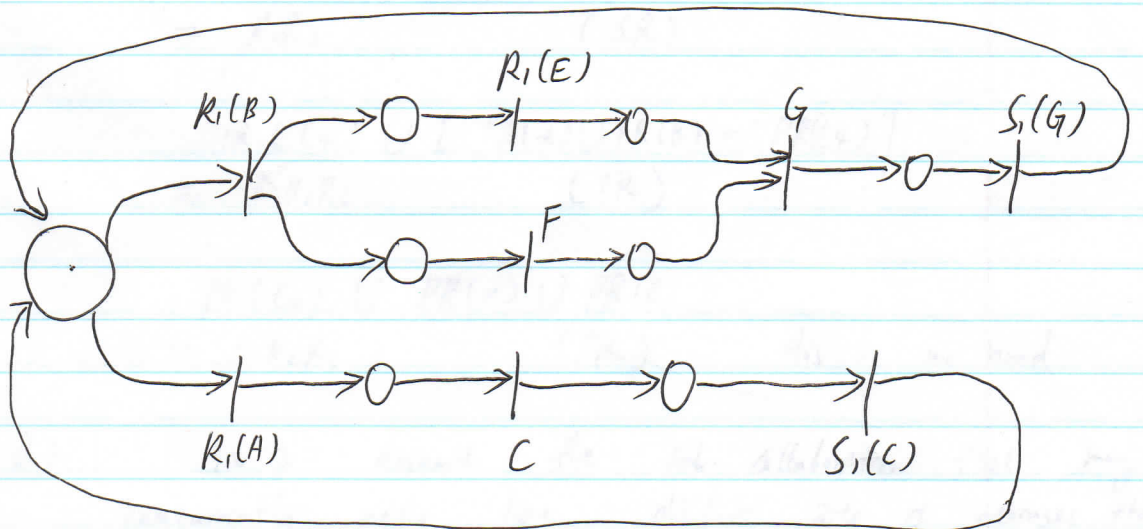 R₁(E)
R₁(B)
G
S₁(G)
F
R₁(A)
C
S₁(C)